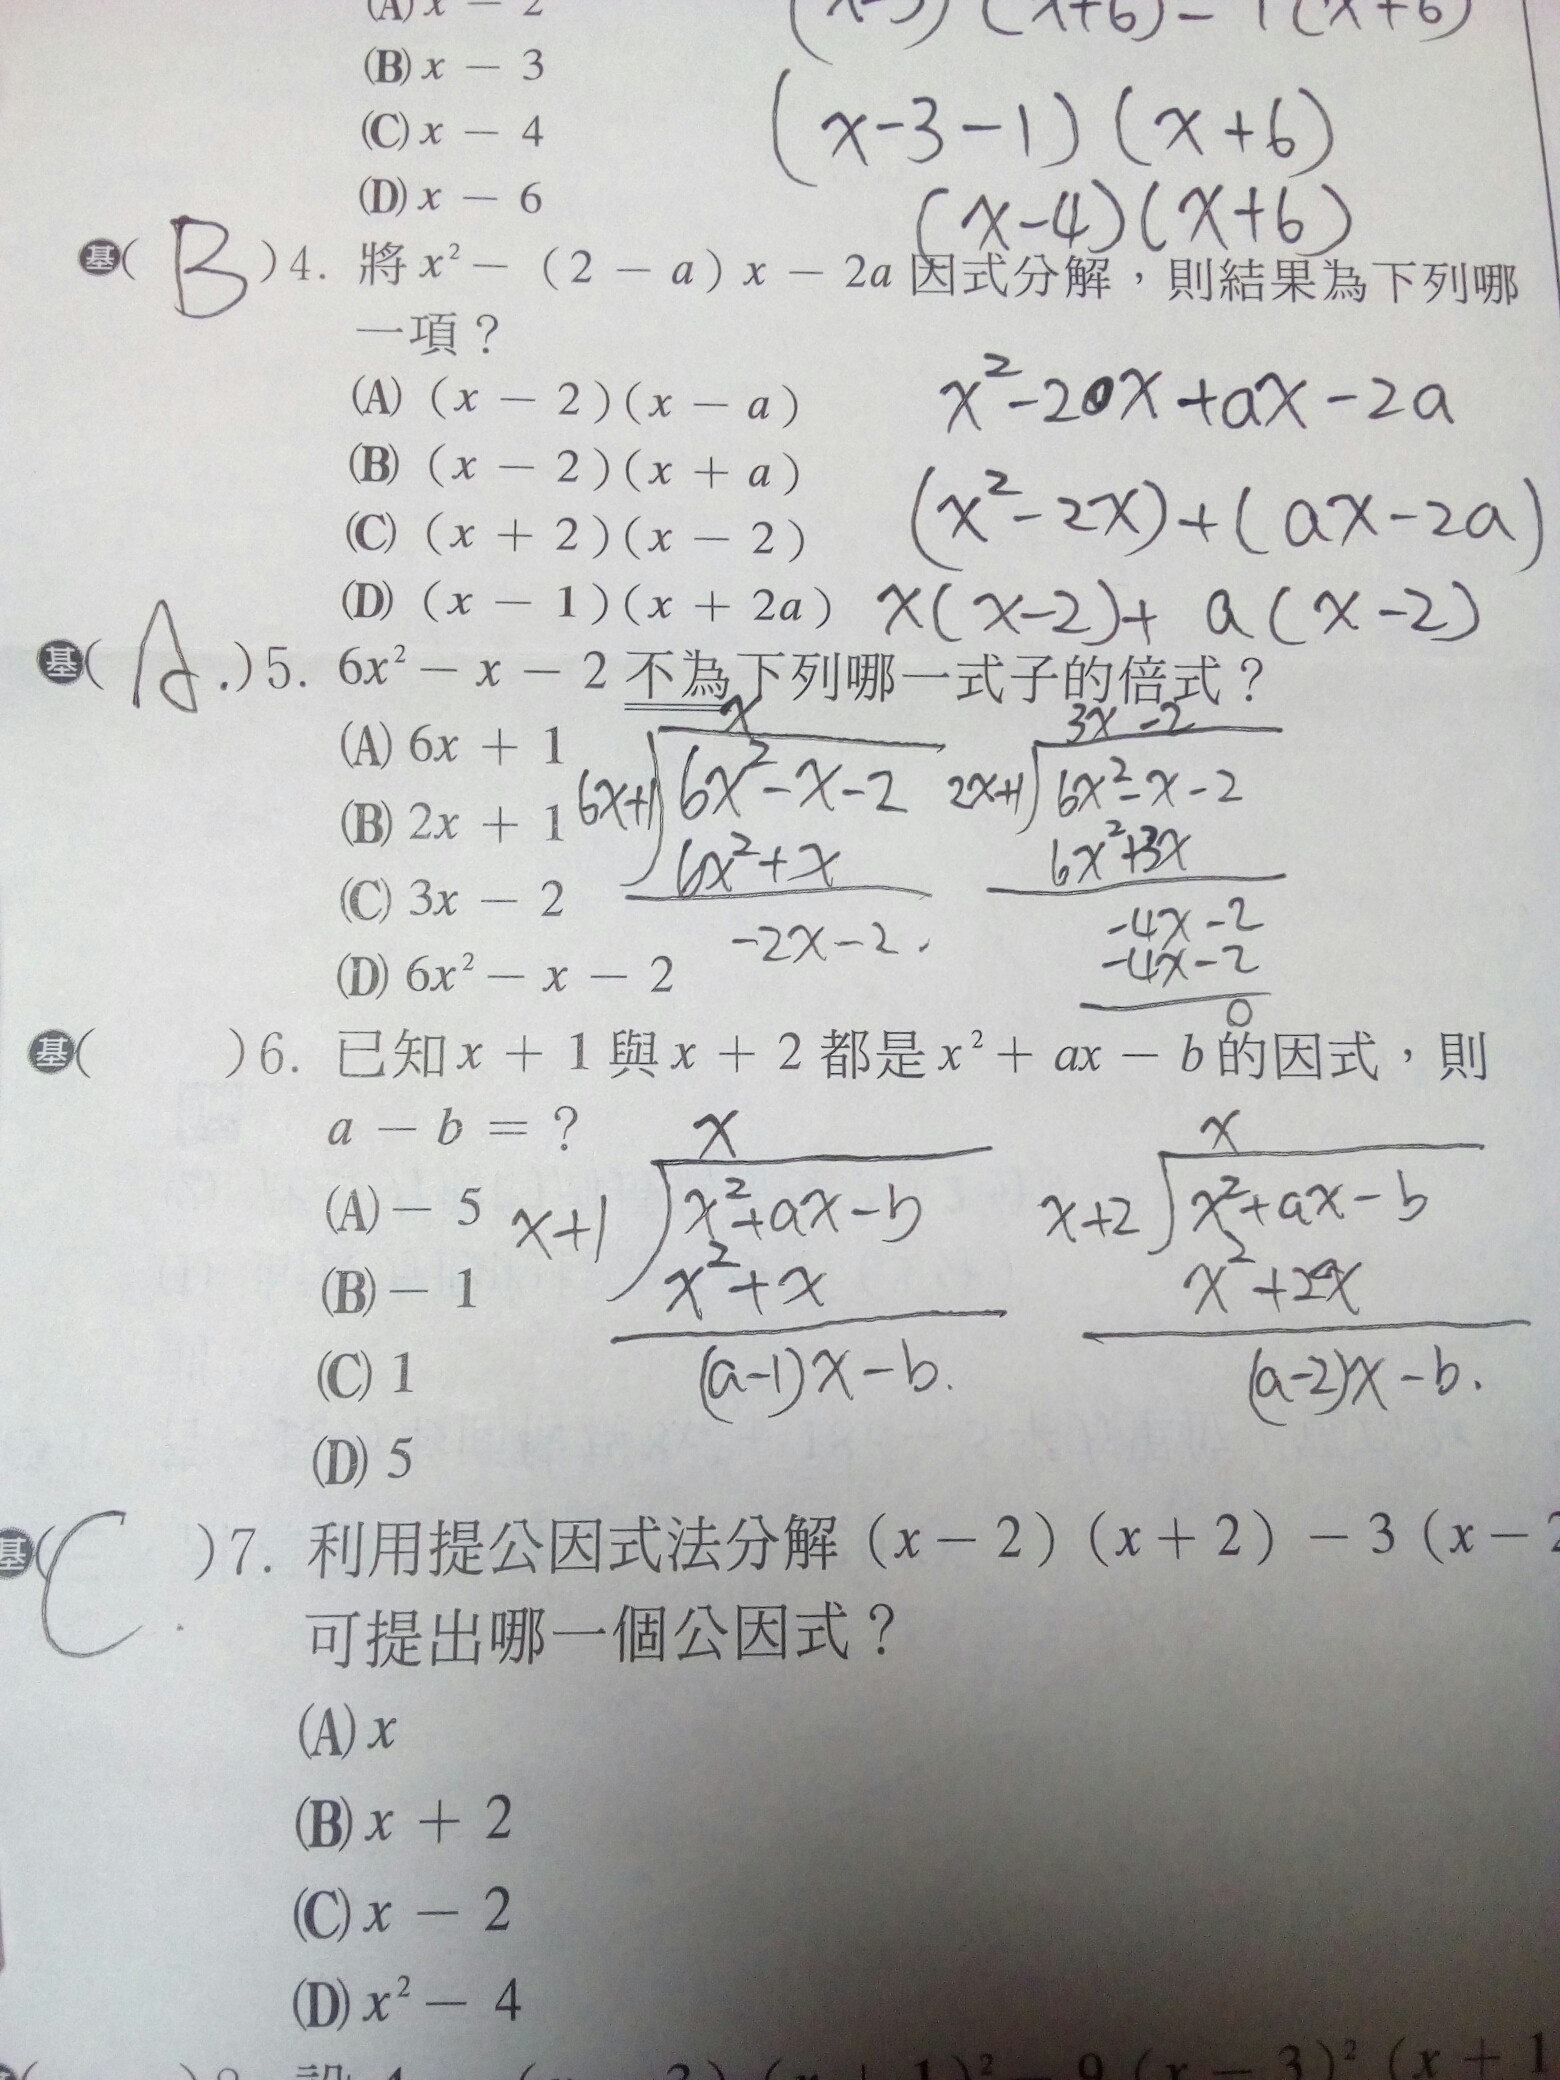 (A) x − 2
(x-3)(x+6)-1(x+6)
(B) x − 3
(C) x − 4
(x-3-1)(x+6)
(D) x − 6
(x-4)(x+6)
基( B )4. 將 x² − (2 − a) x − 2a 因式分解，則結果為下列哪
一項？
(A) (x − 2)(x − a)
x²-2x+ax-2a
(B) (x − 2)(x + a)
(C) (x + 2)(x − 2)
(x²-2x)+(ax-2a)
(D) (x − 1)(x + 2a)
x(x-2)+ a(x-2)
基( A.)5. 6x² − x − 2 不為下列哪一式子的倍式？
(A) 6x + 1
(B) 2x + 1
(C) 3x − 2
(D) 6x² − x − 2
x
6x+1 6x²-x-2
6x²+x
-2x-2.
3x-2
2x+1 6x²-x-2
6x²+3x
-4x-2
-4x-2
0
基( )6. 已知 x + 1 與 x + 2 都是 x² + ax − b 的因式，則
a − b = ？
(A) − 5
(B) − 1
(C) 1
(D) 5
x
x+1 x²+ax-b
x²+x
(a-1)x-b.
x
x+2 x²+ax-b
x²+2x
(a-2)x-b.
基( C )7. 利用提公因式法分解 (x − 2) (x + 2) − 3 (x − 2
可提出哪一個公因式？
(A) x
(B) x + 2
(C) x − 2
(D) x² − 4